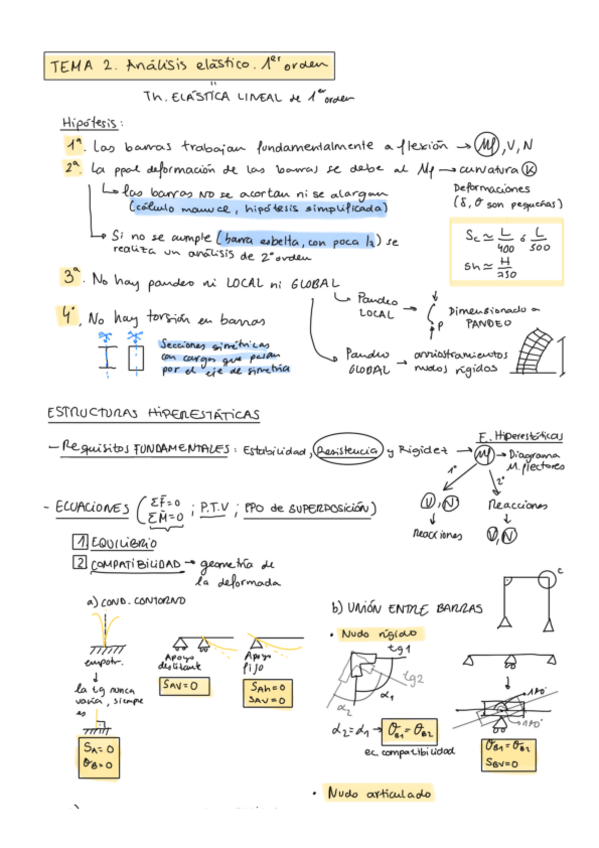 TEMA 2. Análisis elástico. 1er orden
Th. ELÁSTICA LINEAL de 1er orden
Hipótesis:
1ª. Las barras trabajan fundamentalmente a flexión → Mf, V, N
2ª. La ppal deformación de las barras se debe al Mf → curvatura K
Las barras NO se acortan ni se alargan
(cálculo manual, hipótesis simplificada)
Deformaciones
(δ, θ son pequeñas)
Si no se cumple (barra esbelta, con poca Iz) se
realiza un análisis de 2º orden
Sc ≃ L/400 ó L/500
Sh ≃ H/250
3ª. No hay pandeo ni LOCAL ni GLOBAL
Pandeo LOCAL →
P
Dimensionado a PANDEO
4ª. No hay torsión en barras
Secciones simétricas
con cargas que pasan
por el eje de simetría
Pandeo GLOBAL → arriostramientos
nudos rígidos
ESTRUCTURAS HIPERESTÁTICAS
- Requisitos FUNDAMENTALES: Estabilidad, Resistencia y Rigidez →
E. Hiperestáticas
Mf → Diagrama
M. flectores
1º
2º
V, N
Reacciones
Reacciones
V, N
- ECUACIONES (ΣF=0 ΣM=0 ; P.T.V ; PPO de SUPERPOSICIÓN)
1 EQUILIBRIO
2 COMPATIBILIDAD → geometría de
la deformada
a) COND. CONTORNO
b) UNIÓN ENTRE BARRAS
C
empotr.
Apoyo deslizante
Apoyo fijo
SAV=0
SAh=0
SAV=0
la tg nunca
varía, siempre
es
SA=0
θB=0
• Nudo rígido
tg1
tg2
α1
α2
α2=α1 → θB1=θB2
ec. compatibilidad
180°
180°
θB1=θB2
SBV=0
• Nudo articulado